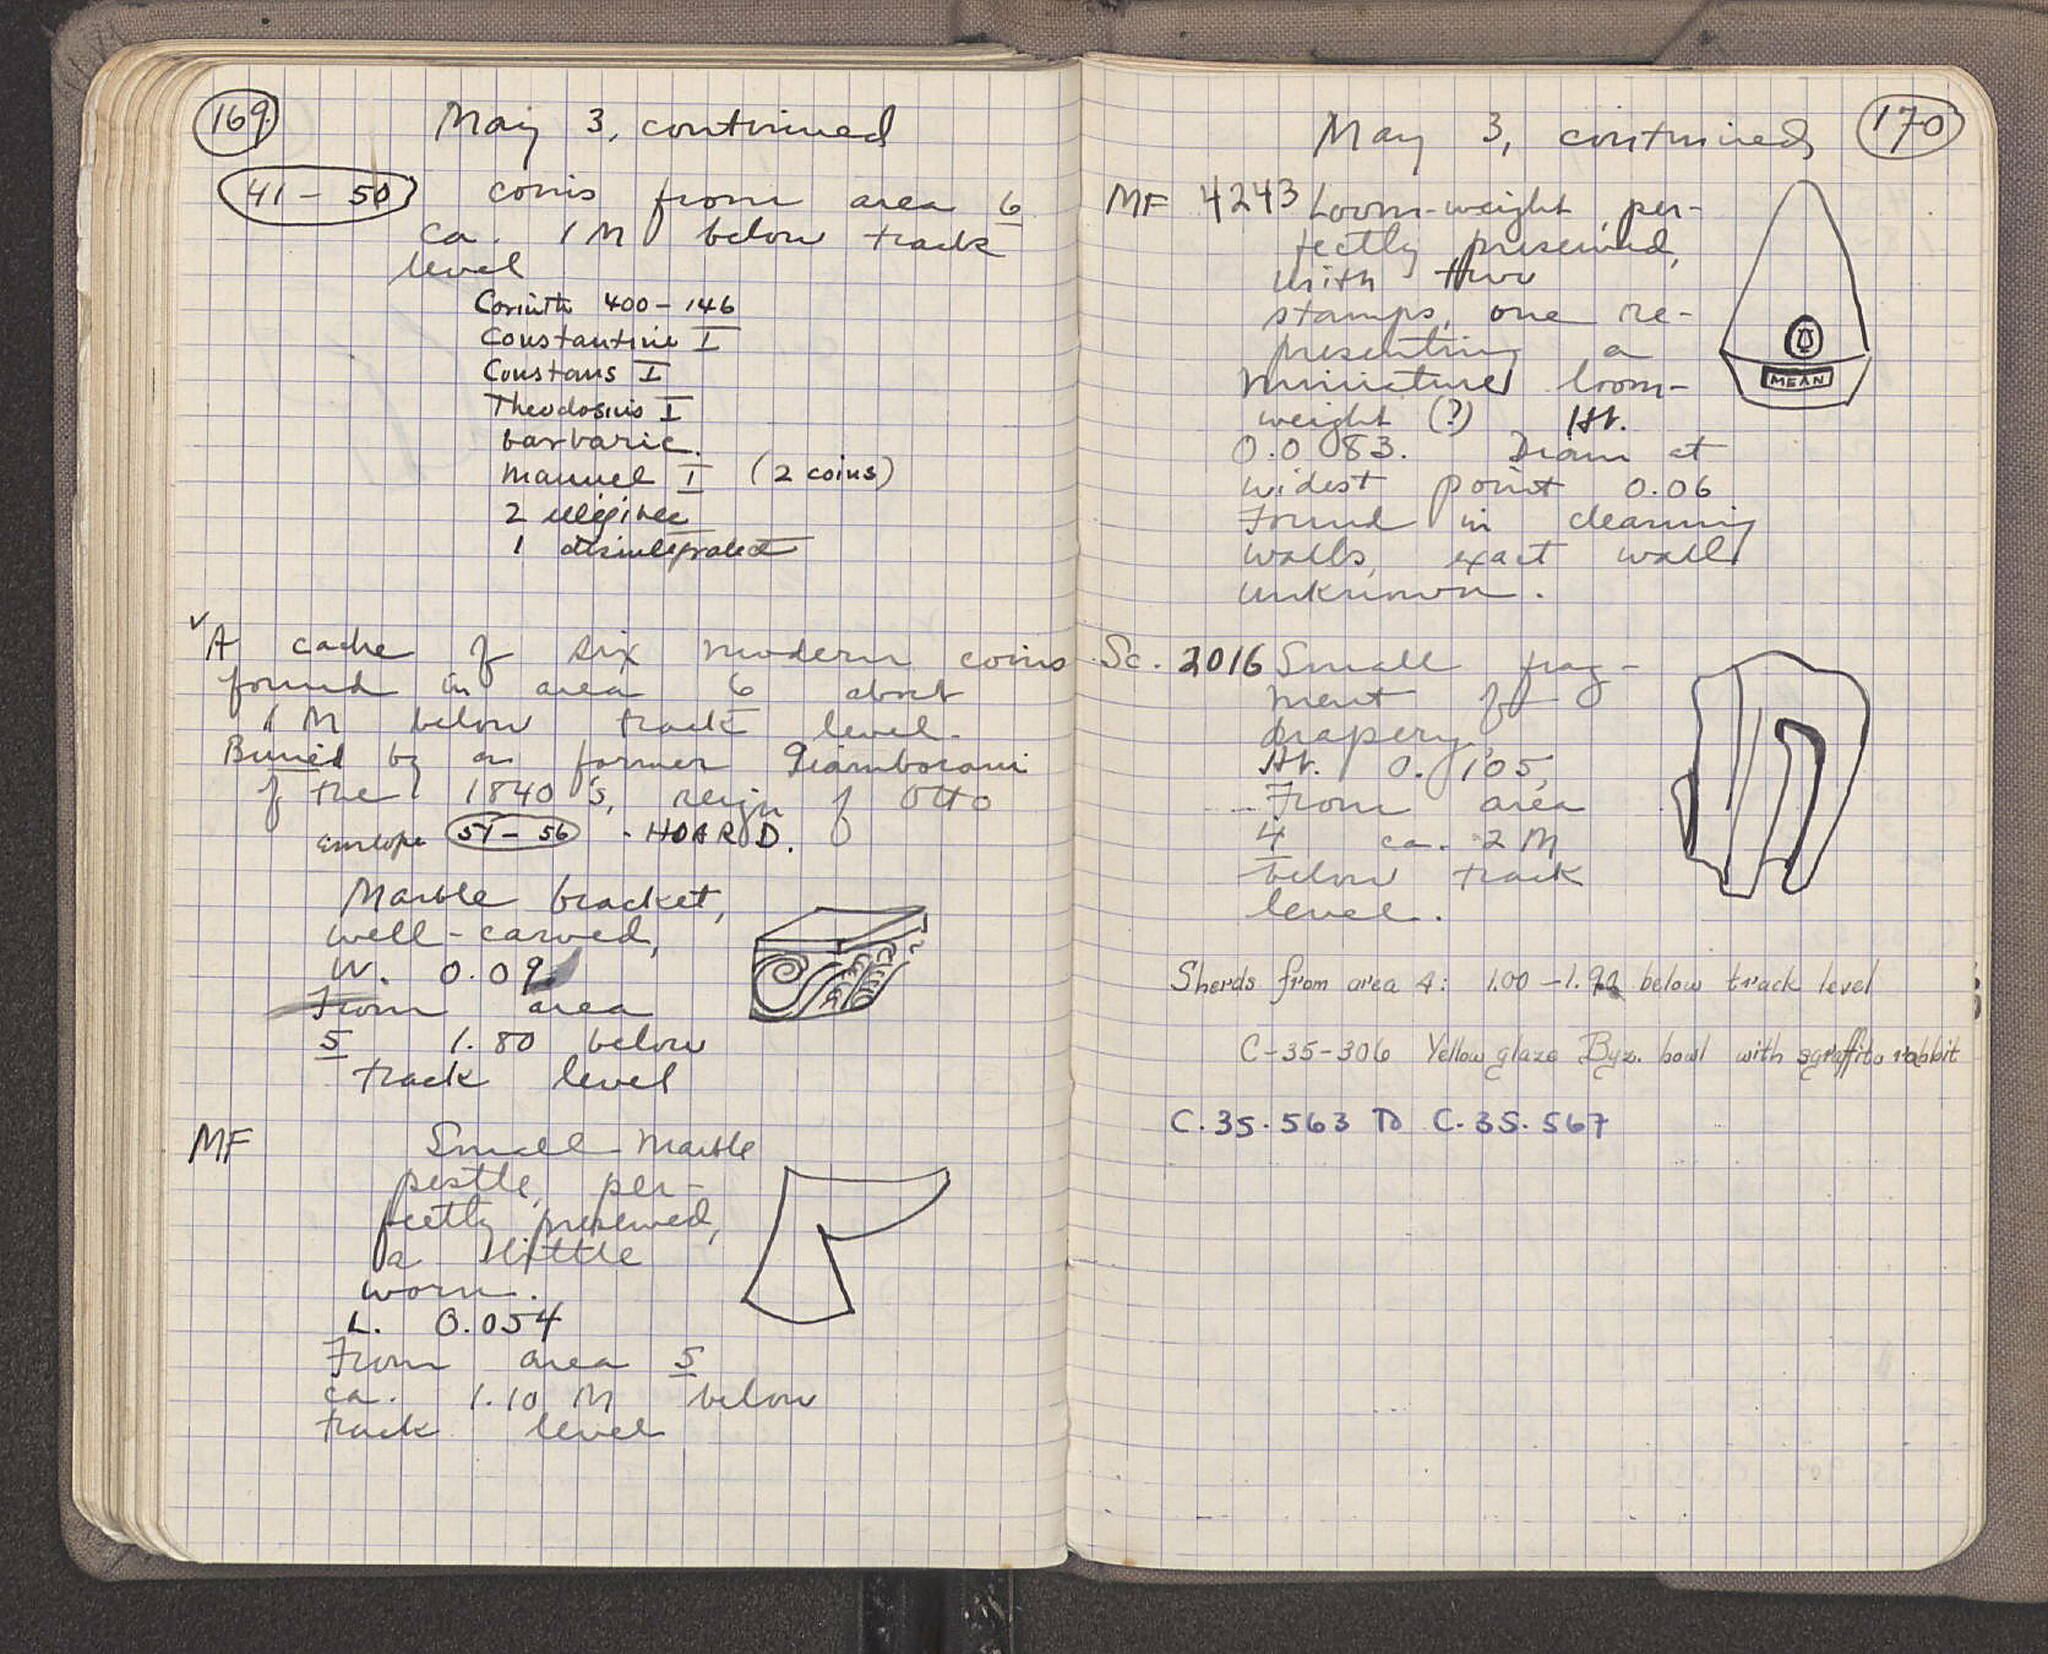 169
May 3, continued
41 - 50 coins from area 6
ca. 1 M below track
level
Corinth 400 - 146
Constantine I
Constans I
Theodosius I
barbaric.
Manuel I (2 coins)
2 illegible
1 disintegrated
A cache of six modern coins
found in area 6 about
1 M below track level.
Buried by a former
of the 1840's, reign of Otto
envelope 51 - 56 - HOARD.
Marble bracket,
well-carved,
W. 0.09
From area
5 1.80 below
track level
MF Small marble
pestle, per-
fectly preserved,
a little
worn.
L. 0.054
From area 5
ca. 1.10 M below
track level
170
May 3, continued
MF 4243 Loom-weight, per-
fectly preserved,
with two
stamps, one re-
presenting a
miniature loom-
weight (?) Ht.
0.083. Diam at
widest point 0.06
Found in cleaning
walls, exact wall
unknown.
MEAN
Sc. 2016 Small frag-
ment of
drapery,
Ht. 0.105,
From area
4 ca. 2 M
below track
level.
Sherds from area 4: 1.00 - below track level
C-35-306 Yellow glaze Byz. bowl with sgraffito rabbit
C.35.563 To C.35.567